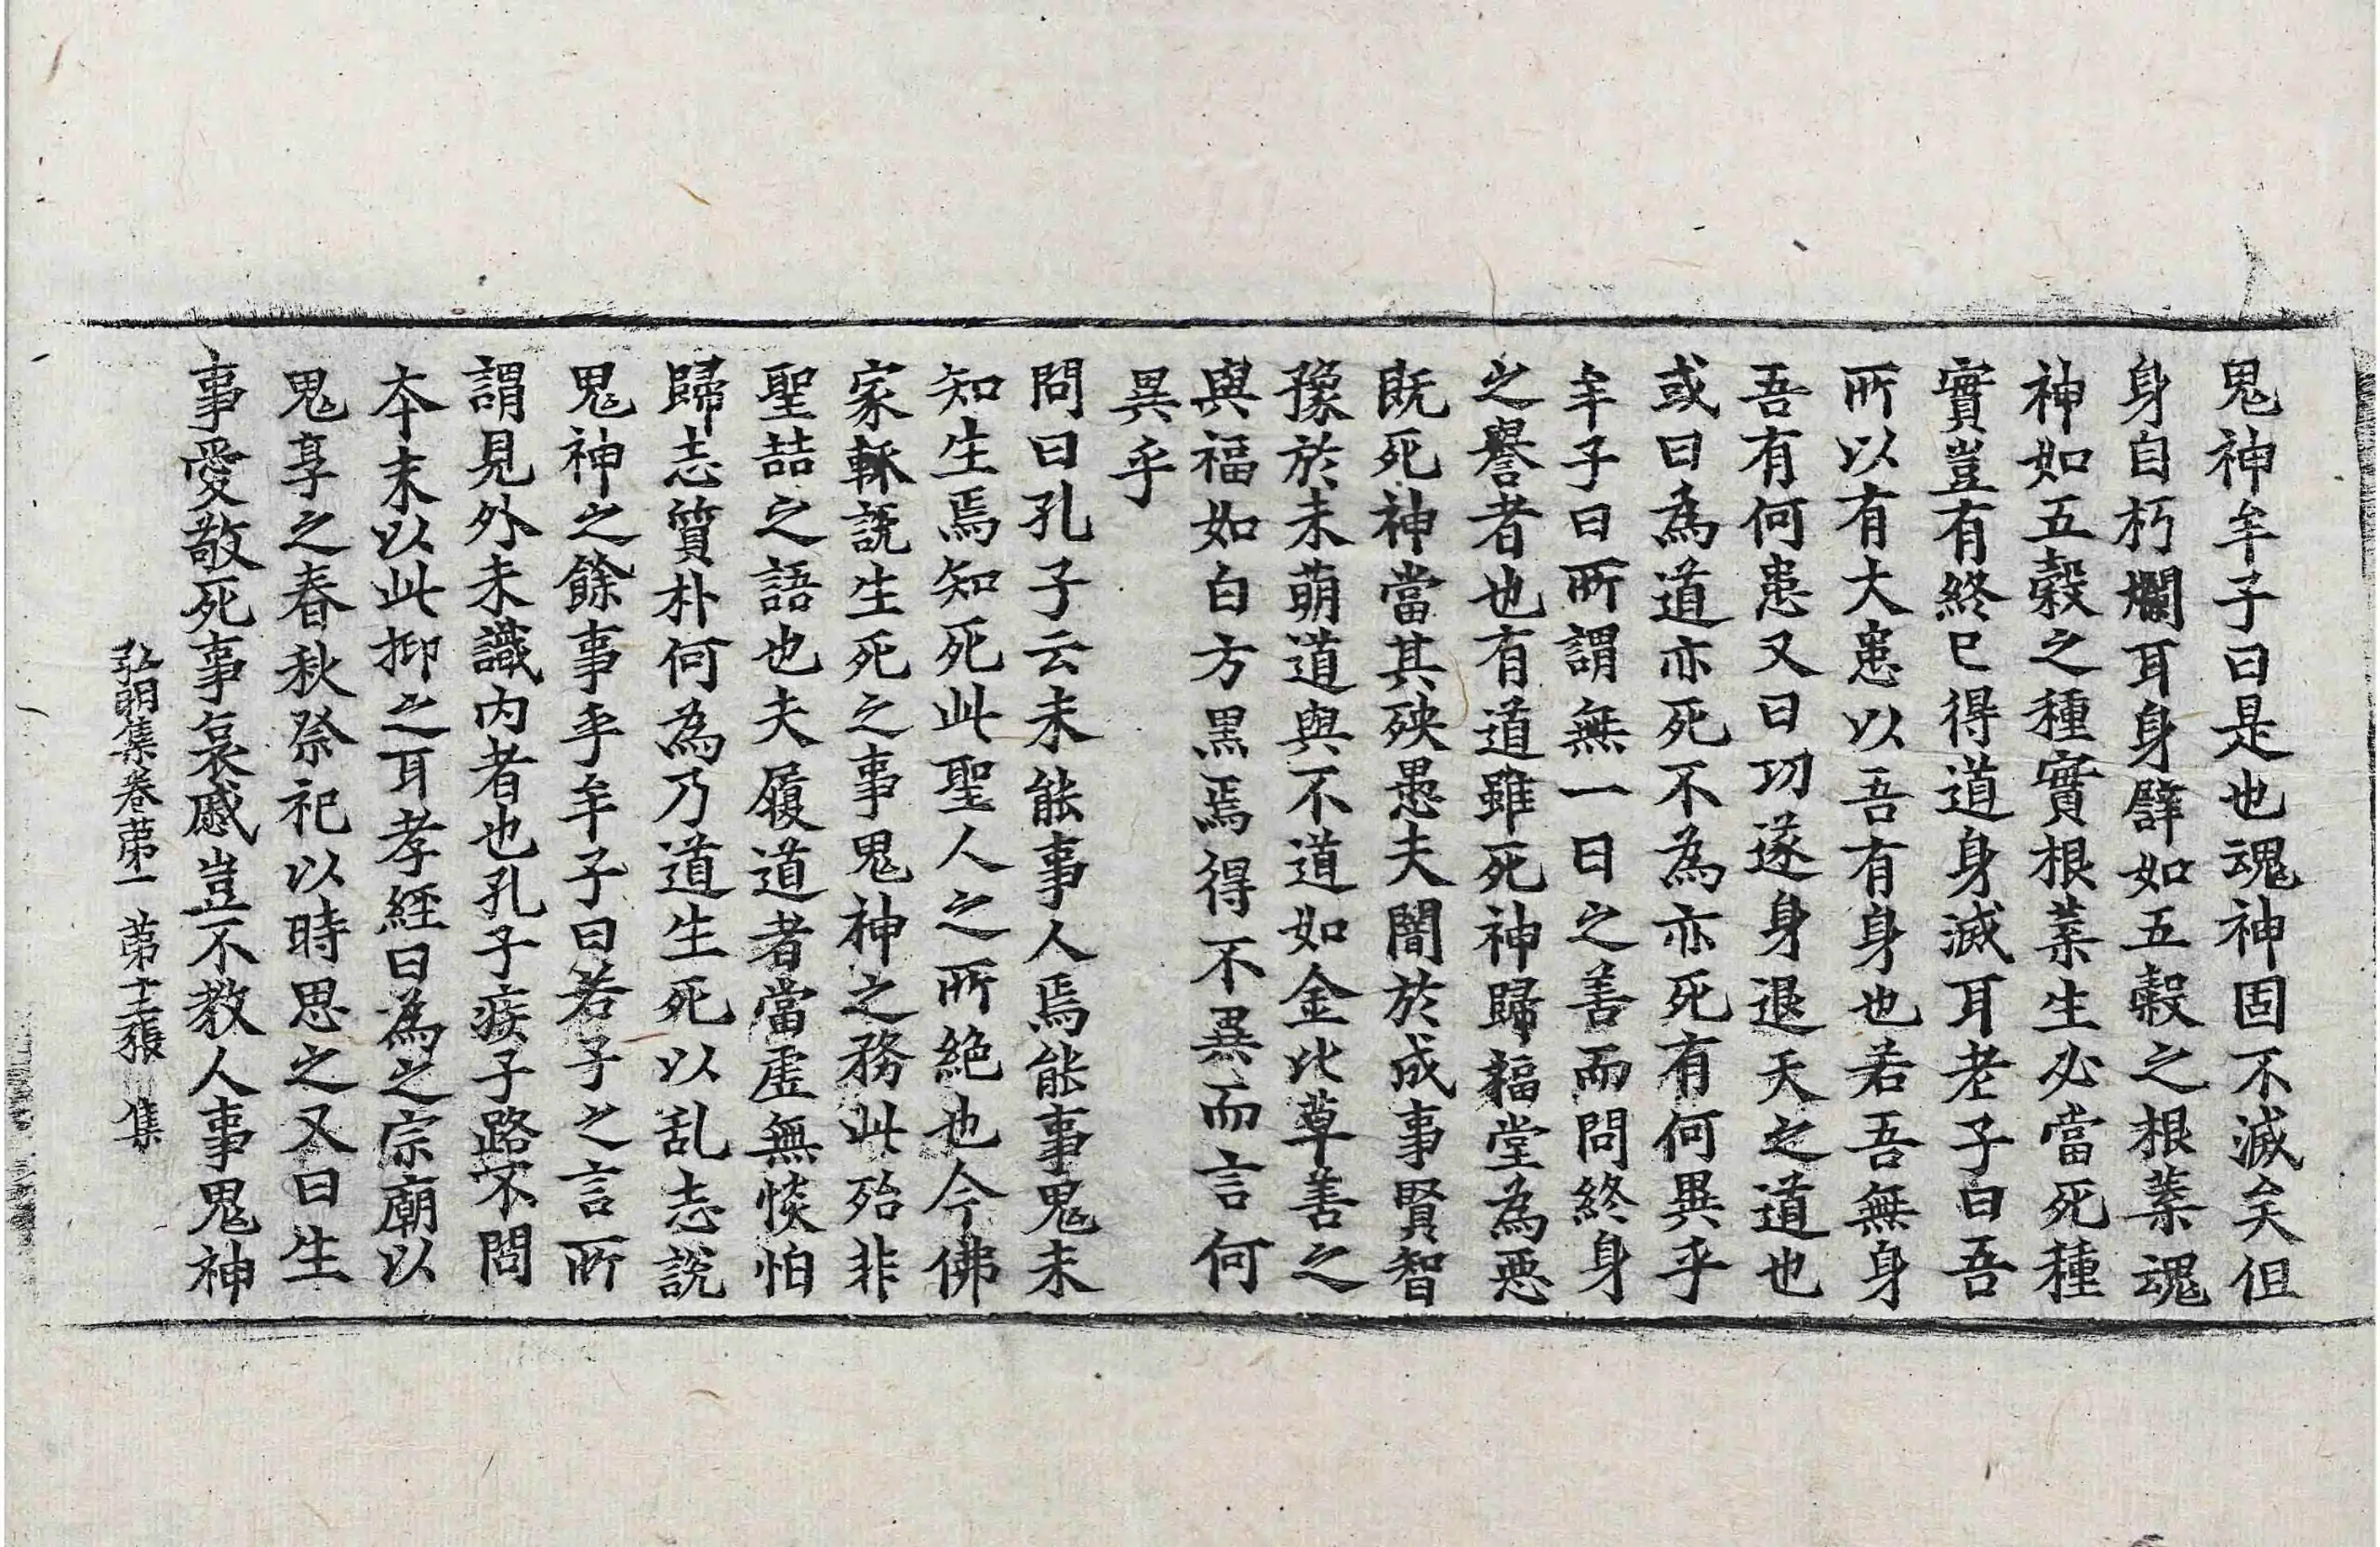 鬼神牟子曰是也魂神固不滅矣但
身自朽爛耳身譬如五穀之根葉魂
神如五穀之種實根葉生必當死種
實豈有終已得道身滅耳老子曰吾
所以有大患以吾有身也若吾無身
吾有何患又曰功遂身退天之道也
或曰為道亦死不為亦死有何異乎
牟子曰所謂無一日之善而問終身
之譽者也有道雖死神歸福堂為惡
既死神當其殃愚夫闇於成事賢智
豫於未萌道與不道如金比草善之
與福如白方黑焉得不異而言何
異乎
問曰孔子云未能事人焉能事鬼未
知生焉知死此聖人之所絶也今佛
家輙說生死之事鬼神之務此殆非
聖喆之語也夫履道者當虛無惔怕
歸志質朴何為乃道生死以乱志說
鬼神之餘事乎牟子曰若子之言所
謂見外未識内者也孔子疾子路不問
本末以此抑之耳孝經曰為之宗廟以
鬼享之春秋祭祀以時思之又曰生
事愛敬死事哀慼豈不教人事鬼神
弘明集卷苐一 苐十三張 集